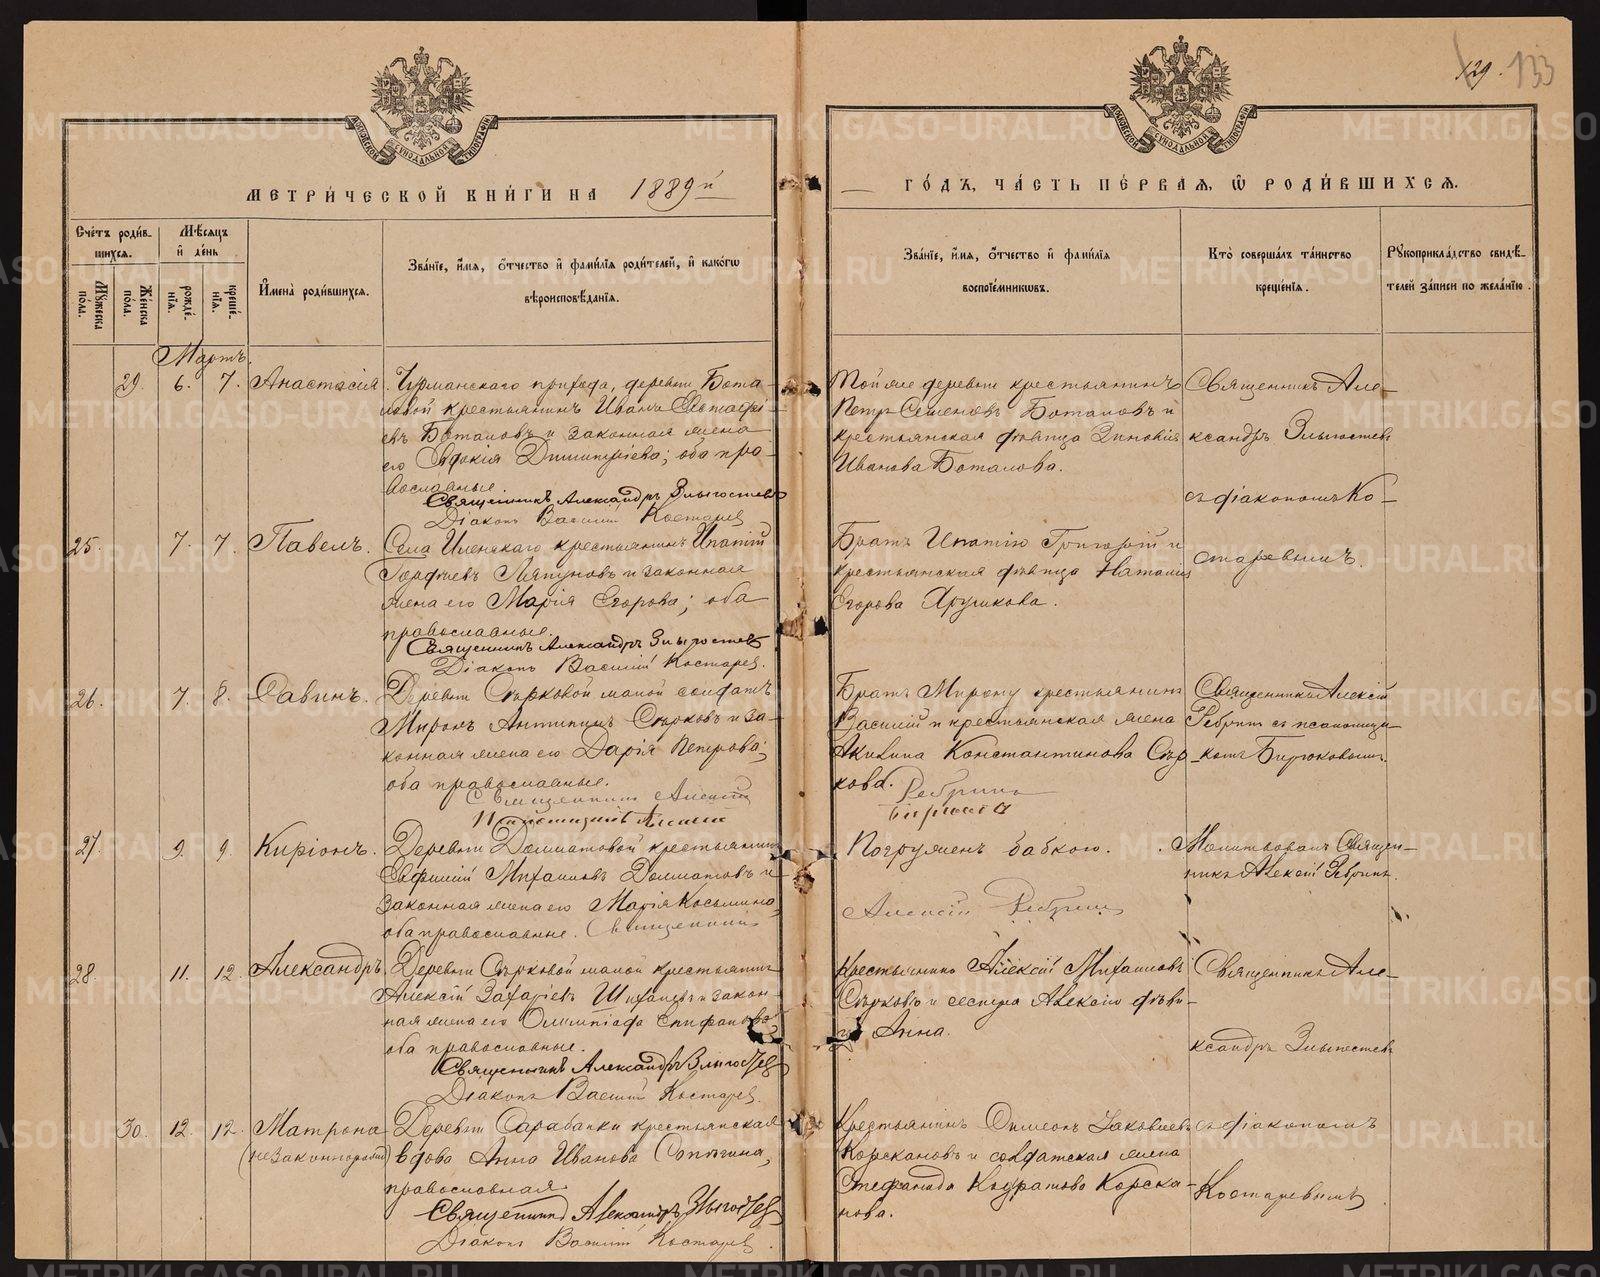 129. 133
МОСКОВСКОЙ СѴНОДАЛЬНОЙ ТИПОГРАФІИ
МОСКОВСКОЙ СѴНОДАЛЬНОЙ ТИПОГРАФІИ
МЕТРИ́ЧЕСКОЙ КНИ́ГИ НА 1889й
ГО́ДЪ, ЧА́СТЬ ПЕ́РВАЯ, Ѡ РОДИ́ВШИХСЯ.
Сче́тъ роди́вшихся.
Му́жеска по́ла.
Же́нска по́ла.
Мѣ́сяцъ и де́нь
рожде́нїя.
креще́нїя.
И҆мена̀ роди́вшихся.
Зва́нїе, и҆́мя, ѻ҆́тчество и҆ фами́лїя роди́телей, и҆ како́гѡ вѣроисповѣ́данїя.
Зва́нїе, и҆́мя, ѻ҆́тчество и҆ фами́лїя воспрїе́мниковъ.
Кто̀ соверша́лъ та́инство креще́нїя.
Рꙋкоприкла́дство свидѣ́телей за́писи по жела́нїю.
Мартъ.
29. 6. 7. Анастасія
Чурманскаго прихода, деревни Бота-
ловой крестьянинъ Иванъ Евстафі-
евъ Боталовъ и законная жена
его Евдокія Димитріева; оба пра-
вославные.
Священникъ Александръ Злыгостевъ
Діаконъ Василій Костаревъ
Той же деревни крестьянинъ
Петръ Семеновъ Боталовъ и
крестьянская дѣвица Зиновія
Иванова Боталова.
Священникъ Але-
ксандръ Злыгостевъ
съ діакономъ Ко-
старевымъ.
25. 7. 7. Павелъ.
Села Иленскаго крестьянинъ Ипатій
Гордіевъ Ляпуновъ и законная
жена его Марія Егорова; оба
православные.
Священникъ Александръ Злыгостевъ
Діаконъ Василій Костаревъ.
Братъ Ипатію Григорій и
крестьянская дѣвица Наталія
Егорова Хрушкова.
26. 7. 8. Савинъ.
Деревни Сѣрковой малой солдатъ
Миронъ Антипинъ Сѣрковъ и за-
конная жена его Дарія Петрова;
оба православные.
Священникъ Алексій
Ребринъ
Братъ Мирону крестьянинъ
Василій и крестьянская жена
Акилина Константинова Сѣр-
кова.
Священникъ Алексій
Ребринъ съ псаломщи-
комъ Бирюковымъ.
27. 9. 9. Киріонъ.
Деревни Долматовой крестьянинъ
Евфимій Михаиловъ Долматовъ и
законная жена его Марія Косьмина,
оба православные. Священникъ
Алексій Ребринъ
Погруженъ бабкою.
Молитвовалъ Священ-
никъ Алексій Ребринъ.
28. 11. 12. Александръ.
Деревни Сѣрковой малой крестьянинъ
Алексій Захаріевъ Шихалевъ и закон-
ная жена его Олимпіада Епифанова
оба православные.
Священникъ Александръ Злыгостевъ
Діаконъ Василій Костаревъ.
Крестьянинъ Алексій Михаиловъ
Сѣрковъ и сестра Алексію дѣви-
ца Анна.
Священникъ Але-
ксандръ Злыгостевъ
съ діакономъ
Костаревымъ
30. 12. 12. Матрона
(незаконнорожд.)
Деревни Сарабаики крестьянская
вдова Анна Иванова Сопѣгина,
православная.
Священникъ Александръ Злыгостевъ
Діаконъ Василій Костаревъ.
Крестьянинъ Симеонъ Іаковлевъ
Корскановъ и солдатская жена
Стефанида Кодратова Корска-
нова.
METRIKI.GASO-URAL.RU